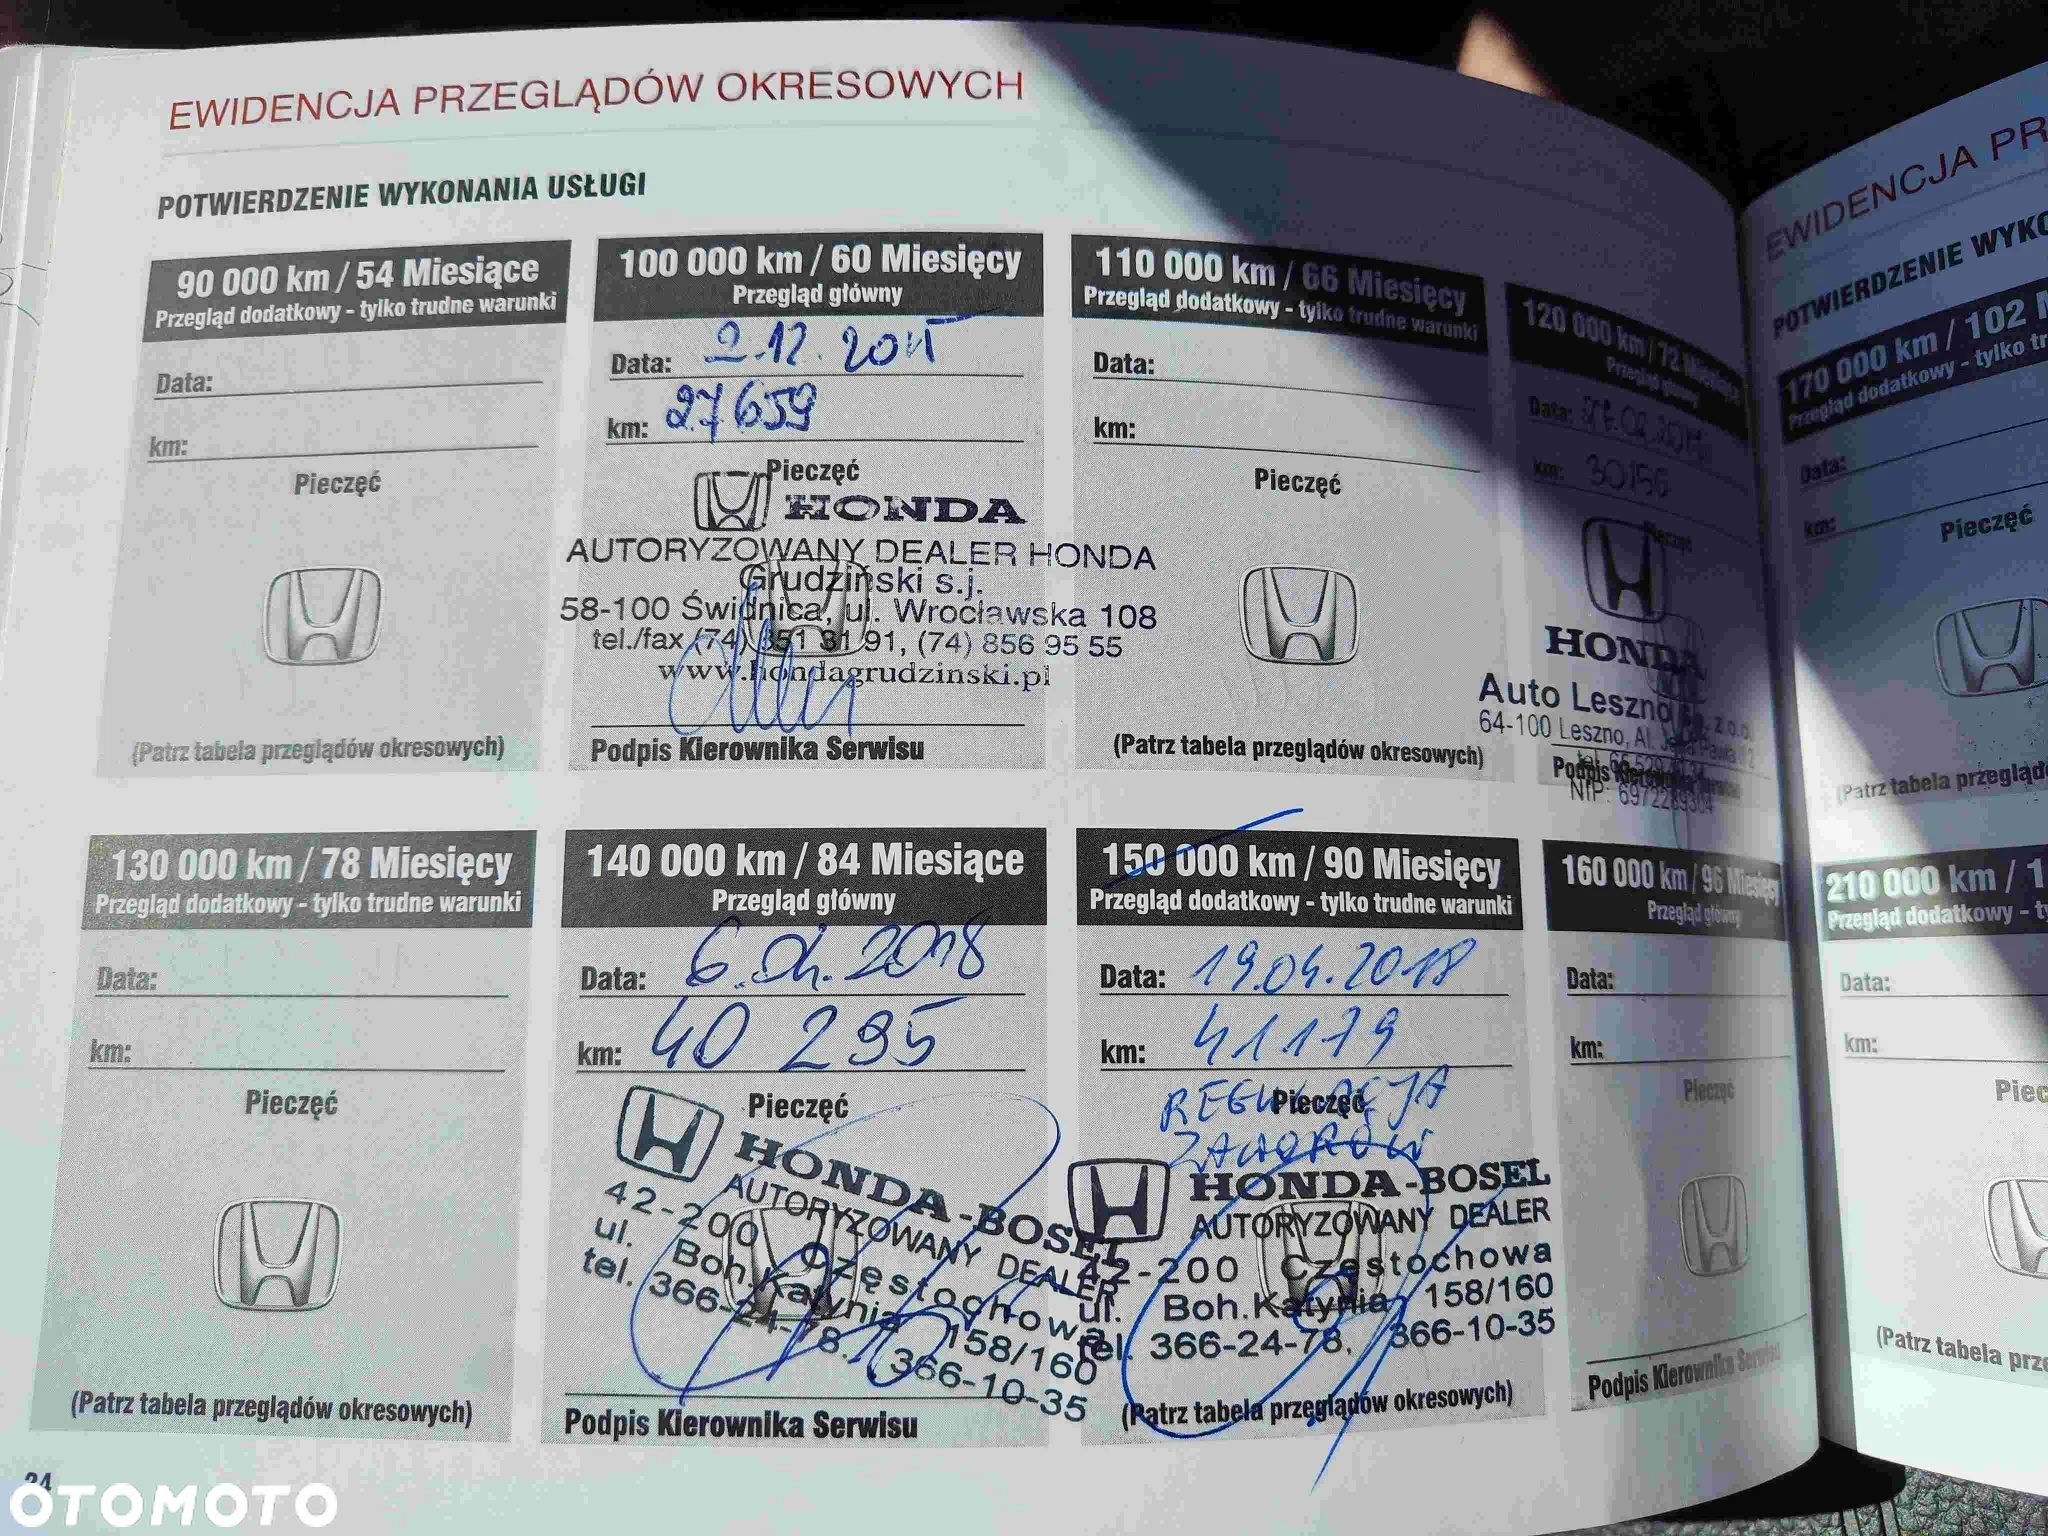 EWIDENCJA PRZEGLĄDÓW OKRESOWYCH
POTWIERDZENIE WYKONANIA USŁUGI
90 000 km / 54 Miesiące
Przegląd dodatkowy - tylko trudne warunki
Data:
km:
Pieczęć
(Patrz tabela przeglądów okresowych)
100 000 km / 60 Miesięcy
Przegląd główny
Data: 2.12.2015
km: 27659
Pieczęć
HONDA
AUTORYZOWANY DEALER HONDA
Grudziński s.j.
58-100 Świdnica, ul. Wrocławska 108
tel./fax (74) 851 31 91, (74) 856 95 55
www.hondagrudzinski.pl
Podpis Kierownika Serwisu
110 000 km / 66 Miesięcy
Przegląd dodatkowy - tylko trudne warunki
Data:
km:
Pieczęć
(Patrz tabela przeglądów okresowych)
120 000 km / 72 Miesiące
Przegląd główny
Data:
km: 30156
Pieczęć
HONDA
Auto Leszno Sp. z o.o.
64-100 Leszno, Al. Jana Pawła
Podpis Kierownika Serwisu
NIP: 6972289304
130 000 km / 78 Miesięcy
Przegląd dodatkowy - tylko trudne warunki
Data:
km:
Pieczęć
(Patrz tabela przeglądów okresowych)
140 000 km / 84 Miesiące
Przegląd główny
Data: 6.04.2018
km: 40 295
Pieczęć
HONDA-BOSEL
AUTORYZOWANY DEALER
42-200 Częstochowa
ul. Boh.Katynia 158/160
tel. 366-24-78, 366-10-35
Podpis Kierownika Serwisu
150 000 km / 90 Miesięcy
Przegląd dodatkowy - tylko trudne warunki
Data: 19.04.2018
km: 41179
Pieczęć
REGULACJA
ZAWORÓW
HONDA-BOSEL
AUTORYZOWANY DEALER
42-200 Częstochowa
ul. Boh.Katynia 158/160
tel. 366-24-78, 366-10-35
(Patrz tabela przeglądów okresowych)
160 000 km / 96 Miesięcy
Przegląd główny
Data:
km:
Pieczęć
Podpis Kierownika Serwisu
24
EWIDENCJA PR
POTWIERDZENIE WYKO
170 000 km / 102 M
Przegląd dodatkowy - tylko tr
Data:
km:
Pieczęć
(Patrz tabela przegląd
210 000 km / 1
Przegląd dodatkowy - ty
Data:
km:
Piec
(Patrz tabela prze
OTOMOTO